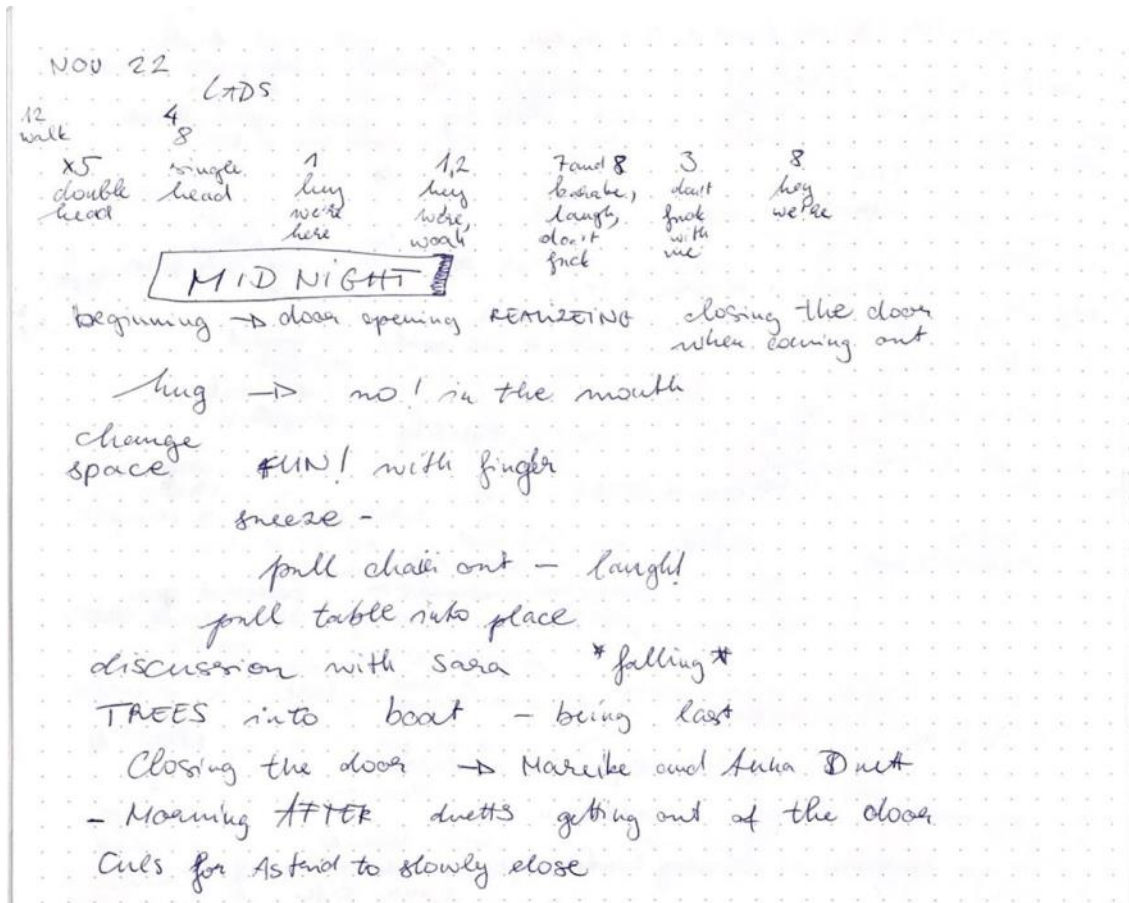 NOV 22
LADS
12 4
walk 8
x5 single 1 1,2 7 and 8 3 8
double head hey hey don't hey
head we're we're, laugh, fuck we're
here woah don't with
fuck me
MIDNIGHT
beginning → door opening REALIZEING closing the door
when coming out
hug → no! in the mouth
change
space FUN! with finger
sneeze -
pull chair out - laugh!
pull table into place
discussion with Sara *falling*
TREES into boat - being last
Closing the door → Mareike and Anna Duett
- Morning AFTER duetts getting out of the door
Cues for Astrid to slowly close